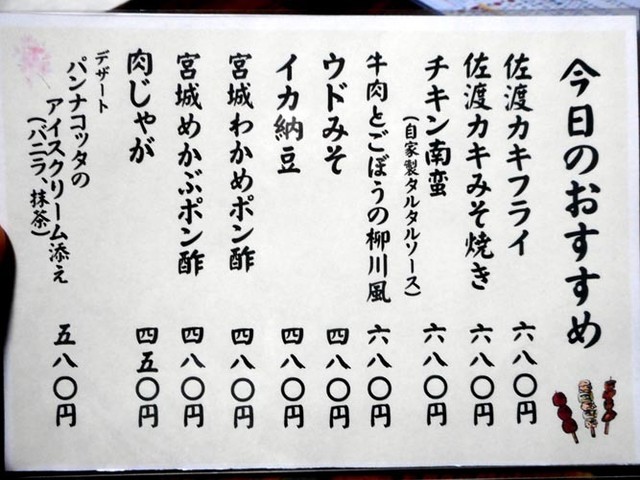 今日のおすすめ
佐渡カキフライ 六八〇円
佐渡カキみそ焼き 六八〇円
チキン南蛮 六八〇円
(自家製タルタルソース)
牛肉とごぼうの柳川風 六八〇円
ウドみそ 四八〇円
イカ納豆 四八〇円
宮城わかめポン酢 四八〇円
宮城めかぶポン酢 四八〇円
肉じゃが 四五〇円
デザート
パンナコッタの
アイスクリーム添え 五八〇円
(バニラ、抹茶)